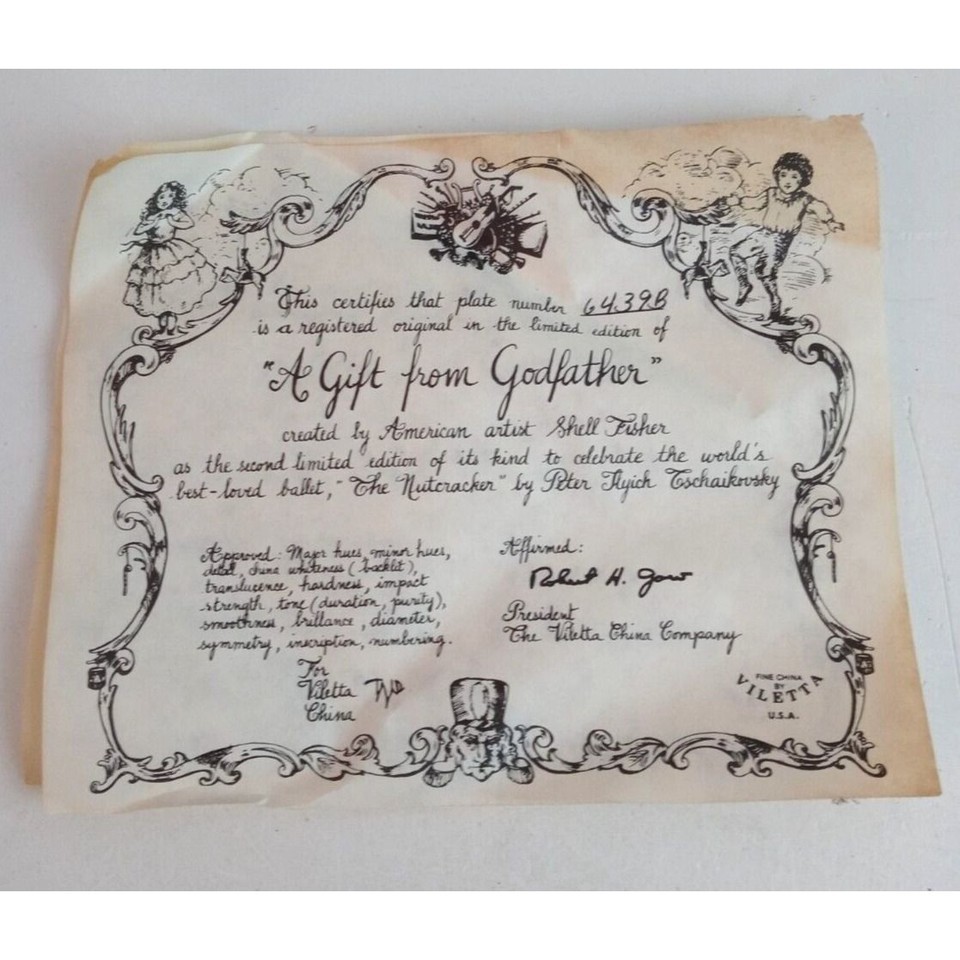 This certifies that plate number 6439B
is a registered original in the limited edition of
"A Gift from Godfather"
created by American artist Shell Fisher
as the second limited edition of its kind to celebrate the world's
best-loved ballet, "The Nutcracker" by Peter Ilyich Tschaikovsky
Approved: Major hues, minor hues,
detail, china whiteness (backlit),
translucence, hardness, impact
strength, tone (duration, purity),
smoothness, brillance, diameter,
symmetry, inscription, numbering.
For
Viletta
China
Affirmed:
Robert H.
President
The Viletta China Company
FINE CHINA
BY
VILETTA
U.S.A.